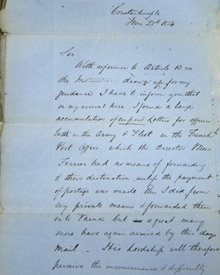 Constantinople
Sir
With reference to Article 13 in
the Instructions drawn up for my
guidance I have to inform you that
on my arrival here I found a large
accumulation of unpaid letters for officers
both in the Army & Fleet in the French
Post Office which the Director Mons
Ferrier had no means of forwarding
to their destination until the payment
of postage was made. This I did from
my private means & forwarded them
on to Varna but a great many
more have again arrived by this day
Mail. His Lordship will therefore
perceive the inconvenience & difficulty